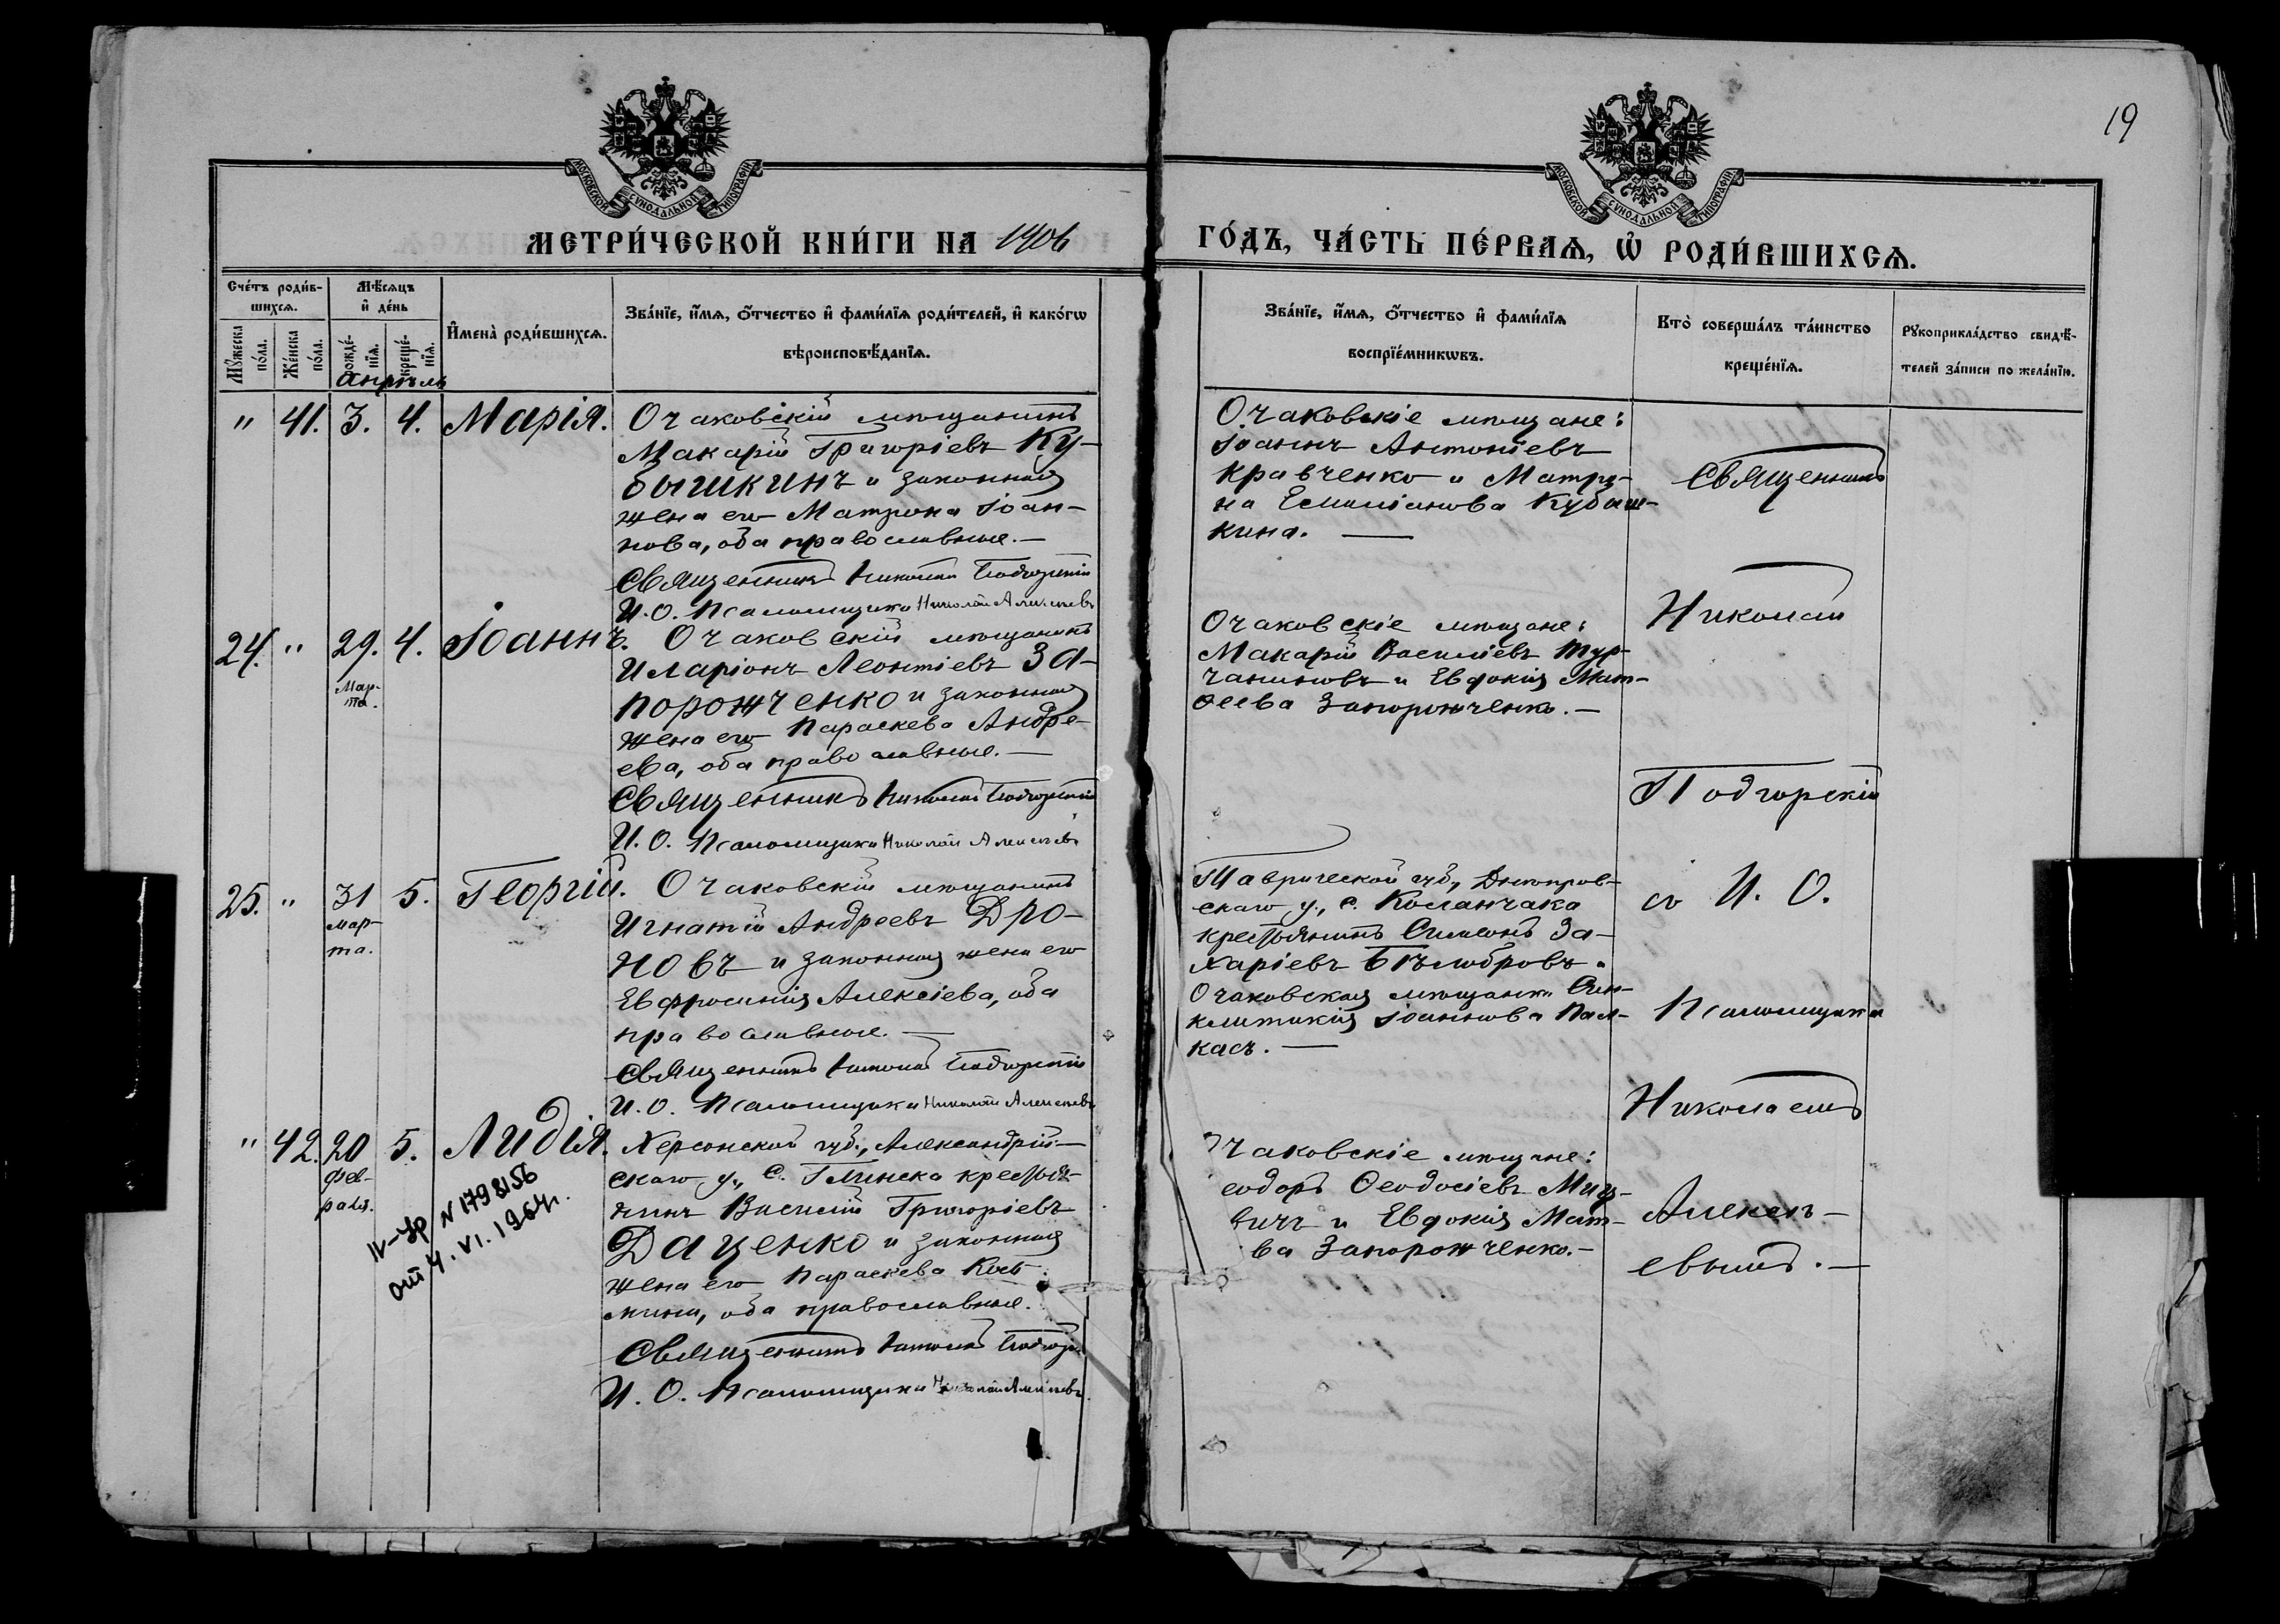 19
МОСКОВСКОЙ СѴНОДАЛЬНОЙ ТИПОГРАФІИ
МОСКОВСКОЙ СѴНОДАЛЬНОЙ ТИПОГРАФІИ
МЕТРИ́ЧЕСКОЙ КНИ́ГИ НА 1906
ГО́ДЪ, ЧА́СТЬ ПЕ́РВАѦ, Ѡ҆ РОДИ́ВШИХСѦ.
Сче́тъ роди́в-
шихсѧ.
Мꙋ́жеска по́ла.
Же́нска по́ла.
Мѣ́сѧцъ
и҆ де́нь
рожде́-
нїѧ.
креще́-
нїѧ.
И҆мена̀ роди́вшихсѧ.
Зва́нїе, и҆́мѧ, ѻ҆́тчество и҆ фами́лїѧ роди́телей, и҆ како́гѡ
вѣроисповѣ́данїѧ.
Зва́нїе, и҆́мѧ, ѻ҆́тчество и҆ фами́лїѧ
воспрїе́мникѡвъ.
Кто̀ соверша́лъ та́инство
креще́нїѧ.
Рꙋкоприкла́дство свидѣ́-
телей за́писи по жела́нїю.
апрѣль
" 41. 3. 4. Марія.
Очаковскій мѣщанинъ
Макарій Григоріевъ Ку-
бышкинъ и законная
жена его Матрона Іоан-
нова, оба православные. —
Священникъ Николай Подгорскій
И. О. Псаломщика Николай Алексѣевъ
Очаковскіе мѣщане:
Іоаннъ Антоніевъ
Кравченко и Матро-
на Емиліанова Кубыш-
кина. —
24. " 29. 4. Іоаннъ.
Мар-
та.
Очаковскій мѣщанинъ
Иларіонъ Леонтіевъ За-
порожченко и законная
жена его Параскева Андре-
ева, оба православные. —
Священникъ Николай Подгорскій
И. О. Псаломщика Николай Алексѣевъ
Очаковскіе мѣщане:
Макарій Василіевъ Тур-
чаниновъ и Евдокія Мат-
ѳеева Запорожченко. —
25. " 31 5. Георгій.
мар-
та.
Очаковскій мѣщанинъ
Игнатій Андреевъ Дро-
новъ и законная жена его
Евфросинія Алексіева, оба
православные. —
Священникъ Николай Подгорскій
И. О. Псаломщика Николай Алексѣевъ
Таврической губ., Днѣпров-
скаго у., с. Коланчака
крестьянинъ Симеонъ За-
харіевъ Бѣлобровъ и
Очаковская мѣщанка Син-
клитикія Іоаннова Пал-
касъ. —
" 42. 20 5. Лидія.
Фев-
раля.
IV-Ур N 1798156
от 4.VI.1964г.
Херсонской губ., Александрій-
скаго у., с. Глинска крестья-
нинъ Василій Григоріевъ
Даценко и законная
жена его Параскева Кось-
мина, оба православные.
Священникъ Николай Подгорс
И. О. Псаломщика Николай Алексѣевъ.
чаковскіе мѣщане:
еодоръ Ѳеодосіевъ Миц-
вичъ и Евдокія Мат-
ва Запорожченко. —
Священникъ
Николай
Подгорскій
съ И. О.
Псаломщика
Николаемъ
Алексѣ-
евымъ. —